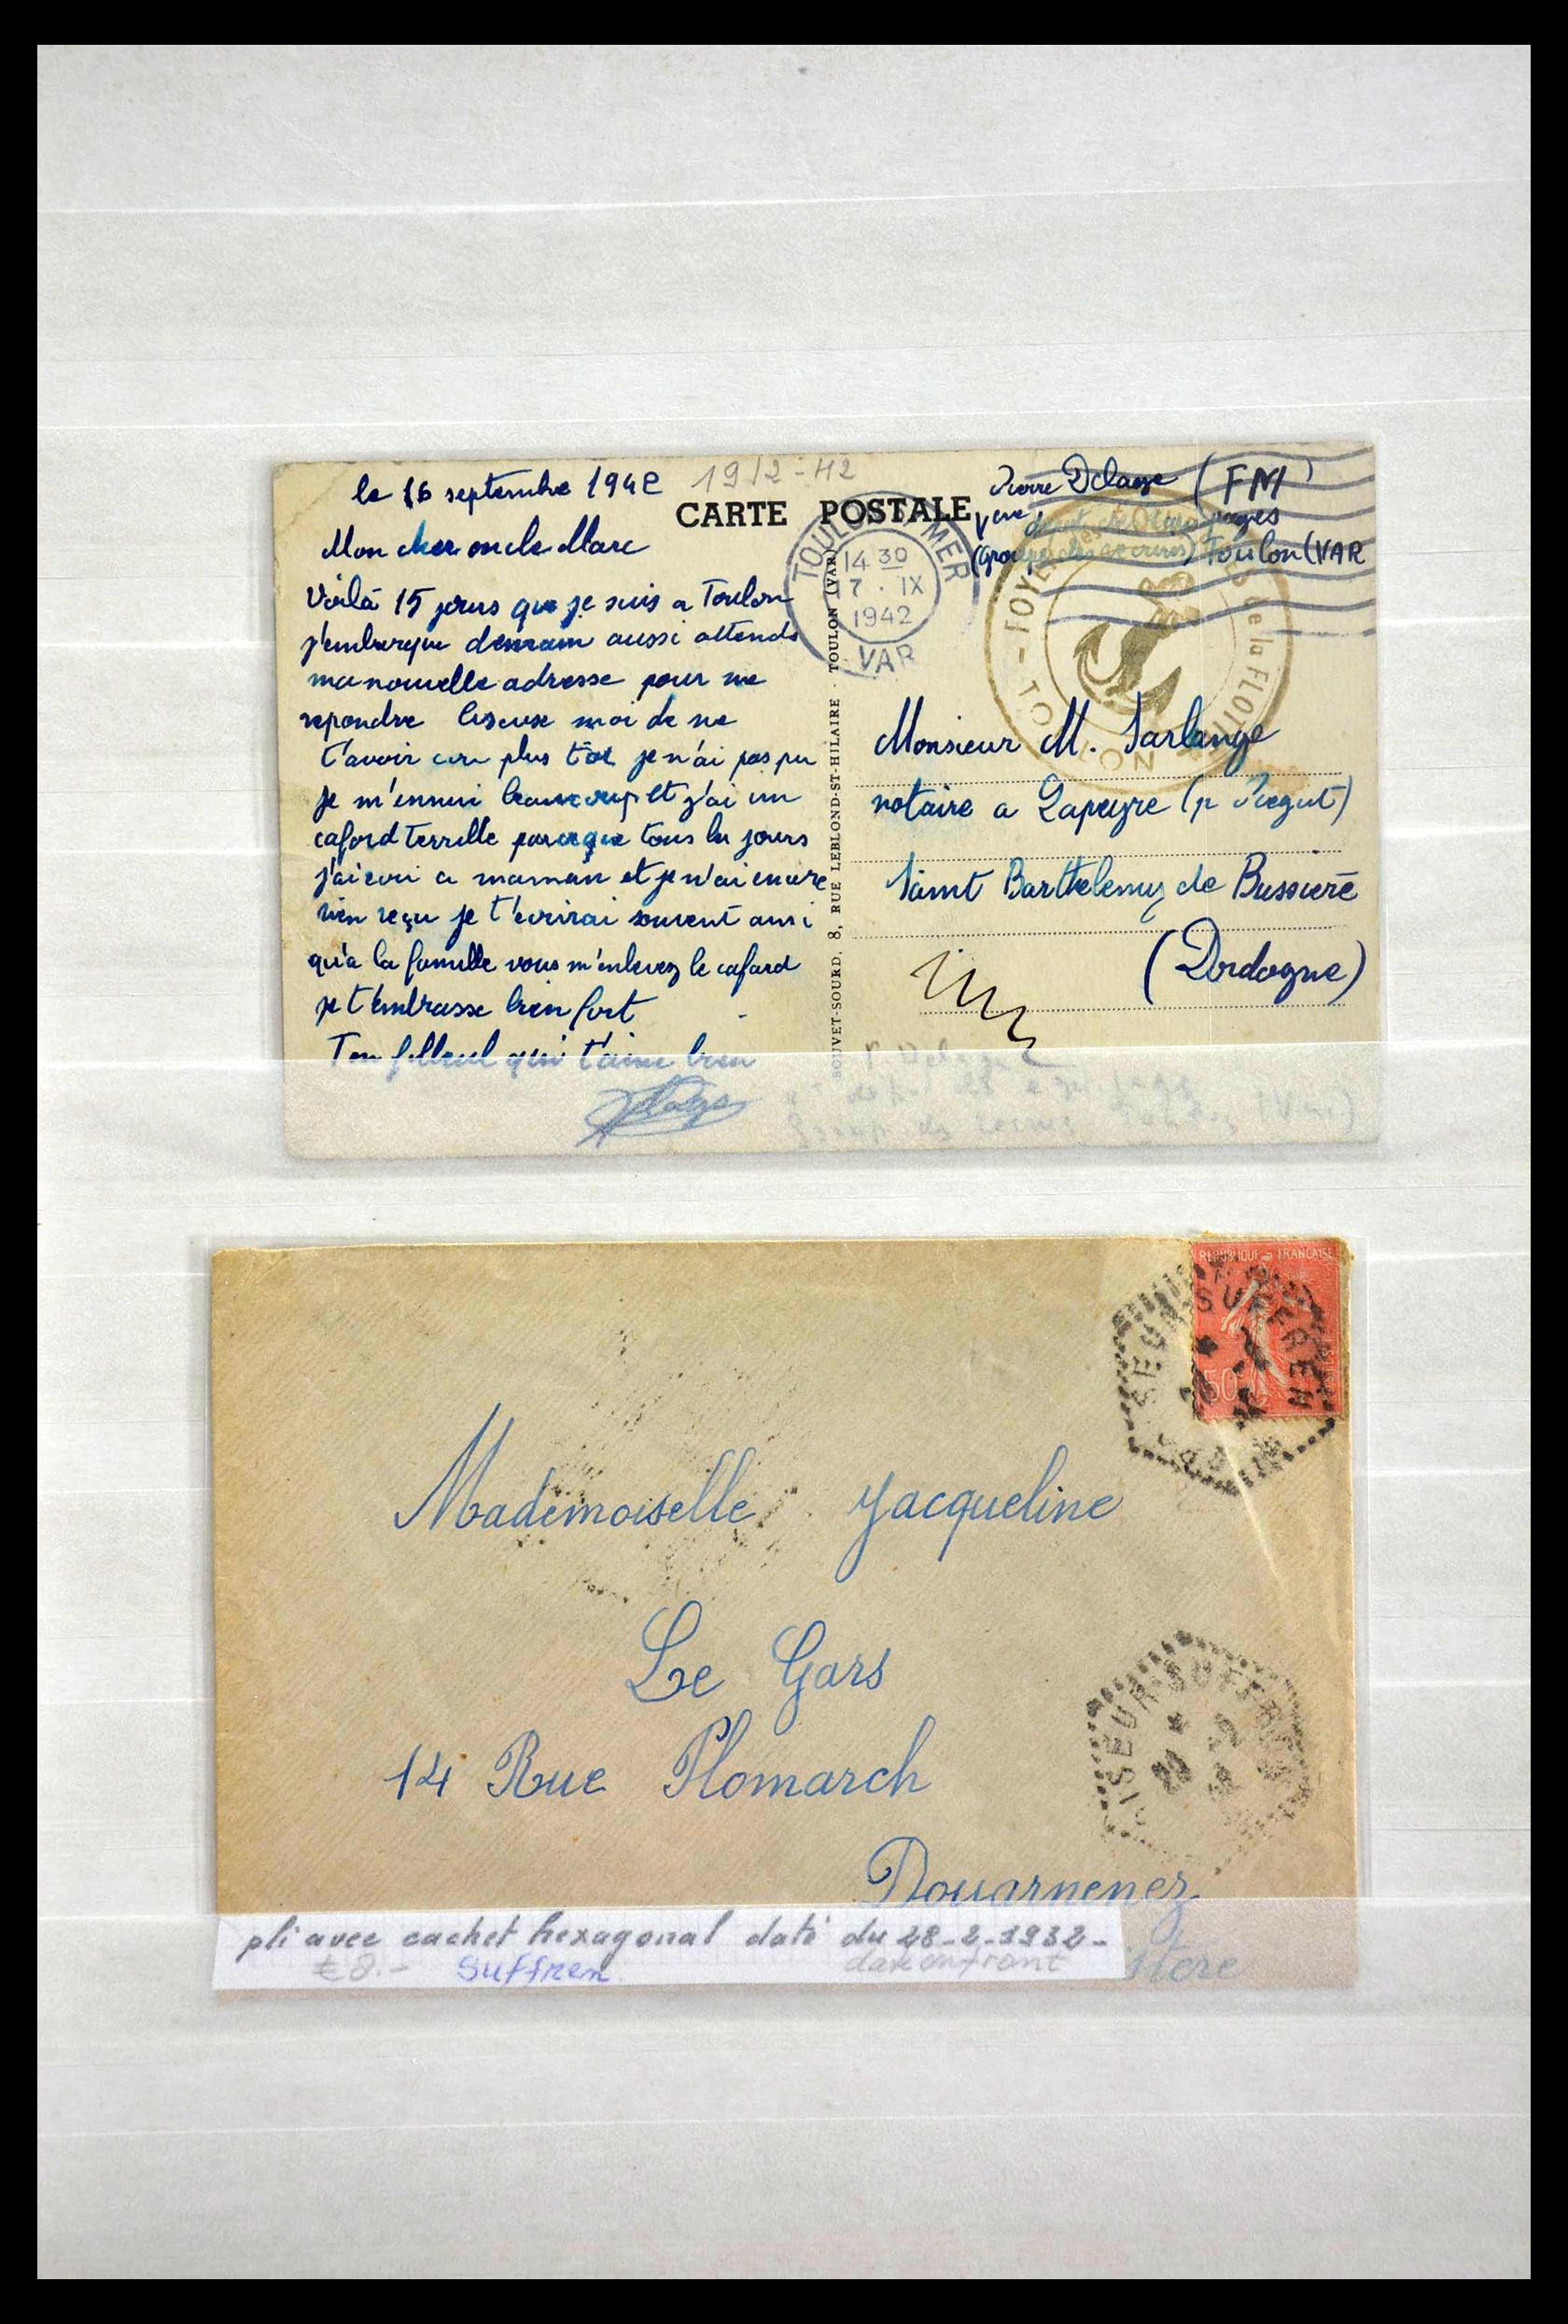 le 16 septembre 1942
1912-42
CARTE POSTALE
Mon cher oncle Marc
Voilà 15 jours que je suis a Toulon
j'embarque demain aussi attends
ma nouvelle adresse pour me
repondre Excuse moi de ne
t'avoir ecri plus tot je n'ai pas pu
je m'ennui beaucoup et j'ai un
cafard terrille parceque tous les jours
j'aiecri a maman et je n'ai encore
rien reçu je t'ecrirai souvent ansi
qu'a la famille vous m'enleverez le cafard
je t'embrasse bien fort
Ton filleul qui t'aime bien
Delage
SOUVET-SOURD, 8, RUE LEBLOND-ST-HILAIRE - TOULON (VAR)
TOULON MER
14 30
17 . IX
1942
VAR
Pierre Delage (FM)
depot des equipages
(groupe des ecoures) Toulon (VAR
FOYER de la FLOTTE
- TOULON
Monsieur M. Sarlange
notaire a Lapeyre (p Piegut)
Saint Barthelemy de Bussiere
(Dordogne)
P. Delage
(Var)
REPUBLIQUE FRANÇAISE
50
SUFFREN
Mademoiselle Jacqueline
Le Gars
14 Rue Plomarch
Douarnenez
istere
CROISEUR SUFFREN
28 -2
pli avec cachet hexagonal daté du 28-2-1932-
€8.- Suffren date on front